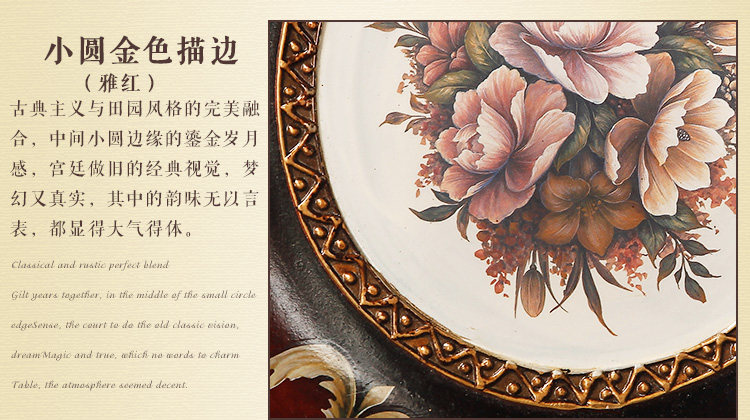 小圆金色描边
（雅红）
古典主义与田园风格的完美融
合，中间小圆边缘的鎏金岁月
感，宫廷做旧的经典视觉，梦
幻又真实，其中的韵味无以言
表，都显得大气得体。
Classical and rustic perfect blend
Gilt years together, in the middle of the small circle
edgeSense, the court to do the old classic vision,
dreamMagic and true, which no words to charm
Table, the atmosphere seemed decent.